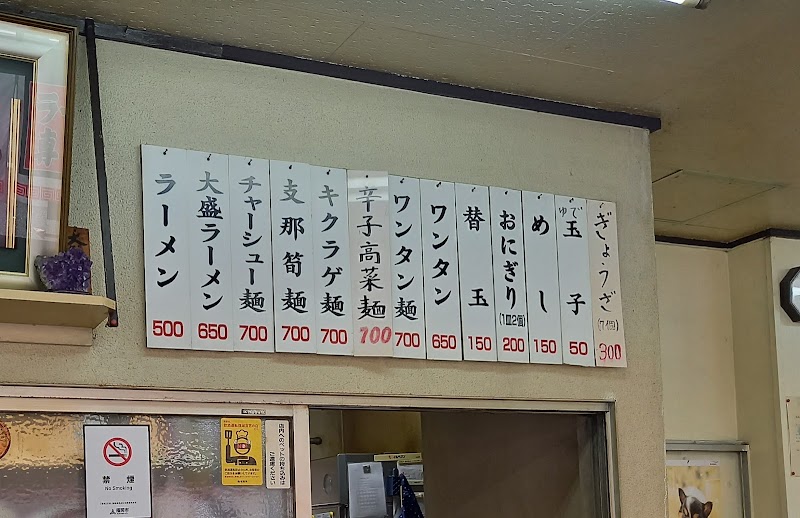 ラーメン 500
大盛ラーメン 650
チャーシュー麺 700
支那筍麺 700
キクラゲ麺 700
辛子高菜麺 700
ワンタン麺 700
ワンタン 650
替玉 150
おにぎり(1皿2個) 200
めし 150
ゆで玉子 50
ぎょうざ(7個) 300
禁煙
No Smoking
福岡市
店内へのペットの持ち込みは
ご遠慮ください